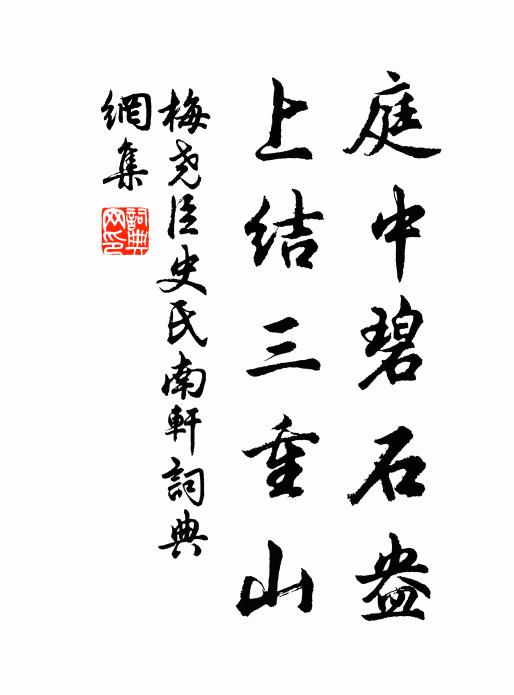 庭中碧石盎
上结三重山
梅尧臣史氏南軒詞典
網集
詞典网印